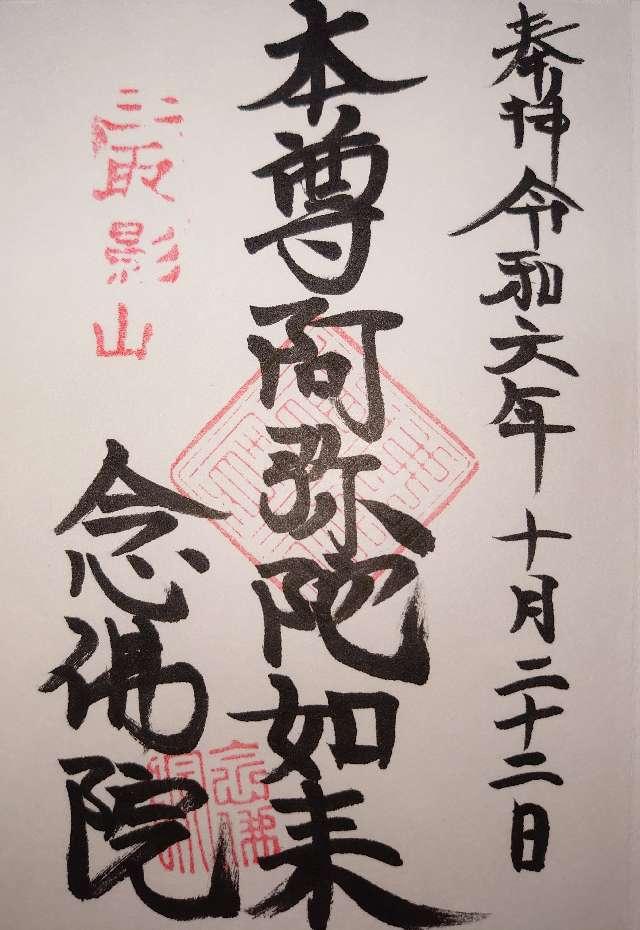 奉拝 令和六年 十月二十二日
本尊阿弥陀如来
影山
念佛院